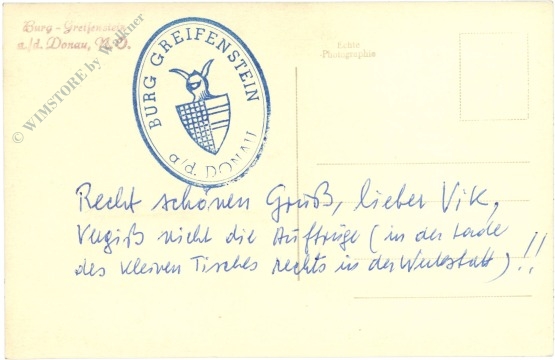 Burg - Greifenstein
a/d. Donau, N.Ö.
© WIMSTORE by Walkner
BURG GREIFENSTEIN
a/d. DONAU
Echte
Photographie
Recht schönen Gruß, lieber Vik,
Vergiß nicht die Aufträge (in der Lade
des kleinen Tisches rechts in der Werkstatt)!!